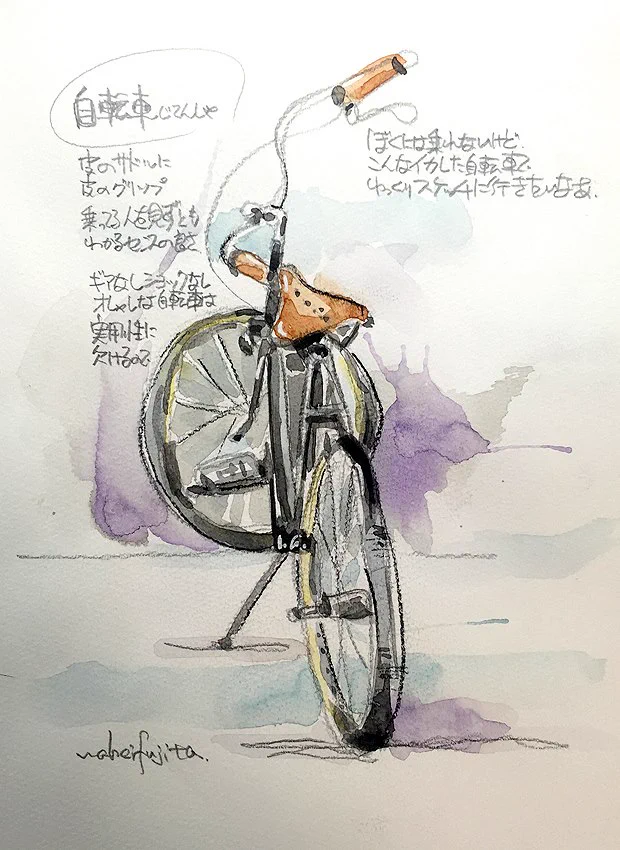 自転車じてんしゃ
皮のサドルに
皮のグリップ
乗ってる人を見ずとも
わかるセンスの良さ
ギアなしショックなし
オシャレな自転車は
実用性に
欠けるので
ぼくには乗れないけど、
こんなイカした自転車で
ゆっくりスケッチに行きたいなあ。
naheifujita.